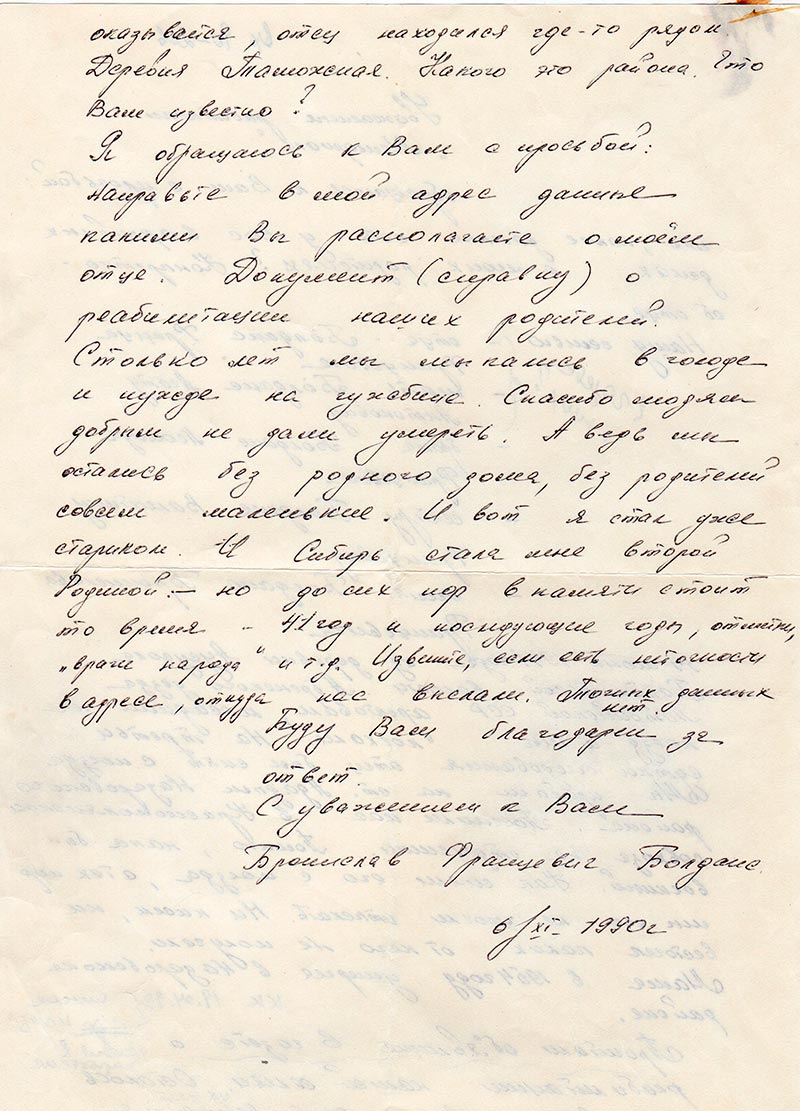 оказывается, отец находился где-то рядом.
Деревня Таможная. Какого это района. Что
Вам известно?
Я обращаюсь к Вам с просьбой:
Направьте в мой адрес данные
какими Вы располагаете о моём
отце. Документ (справку) о
реабилитации наших родителей.
Столько лет мы мыкались в голоде
и нужде на чужбине. Спасибо людям
добрым не дали умереть. А ведь мы
остались без родного дома, без родителей
совсем маленькие. И вот я стал уже
стариком. И Сибирь стала мне второй
Родиной. – но до сих пор в памяти стоит
то время – 41 год и последующие годы, отметки,
„враги народа" и т.д. Извините, если есть неточности
в адресе, откуда нас выслали. Точных данных
нет.
Буду Вам благодарен за
ответ.
С уважением к Вам
Бронислав Францевич Болданс.
6/XI- 1990г